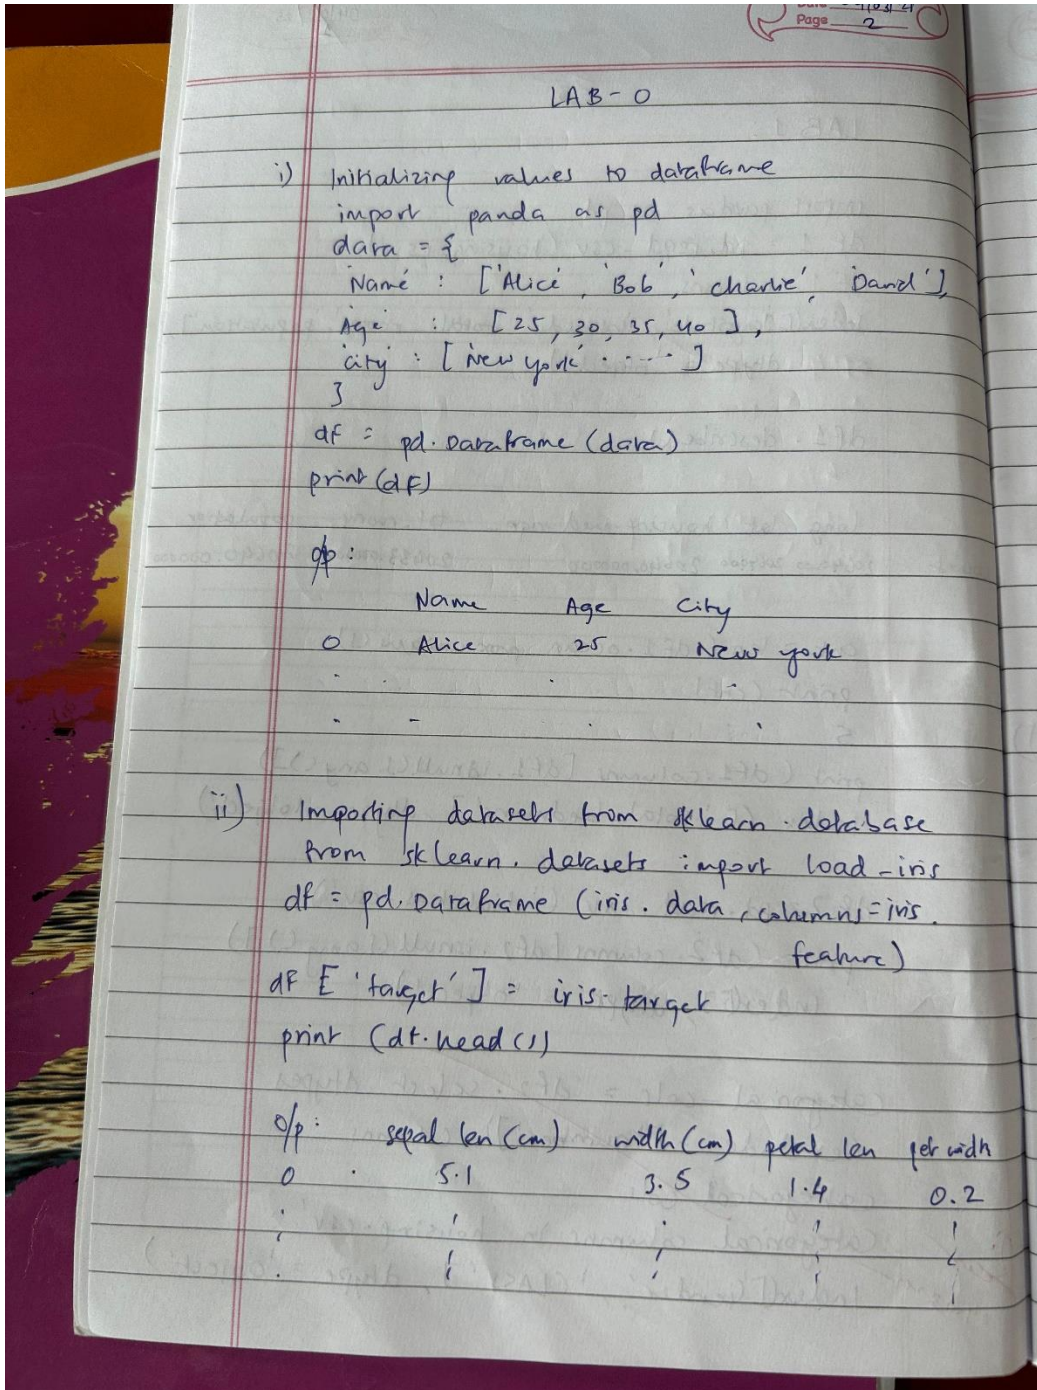 Page 2
LAB-0
i) Initializing values to dataframe
import panda as pd
data = {
'Name' : ['Alice', 'Bob', 'charlie', 'David'],
'Age' : [25, 30, 35, 40],
'city' : ['New york' ..... ]
}
df = pd. Dataframe (data)
print (df)
o/p :
Name Age City
0 Alice 25 New york
ii) Importing datasets from sklearn. database
from sklearn. datasets import load-iris
df = pd. DataFrame (iris. data, columns = iris.
feature)
df ['target'] = iris. target
print (df. head ())
o/p: sepal len (cm) width (cm) petal len pet width
0 . 5.1 3.5 1.4 0.2